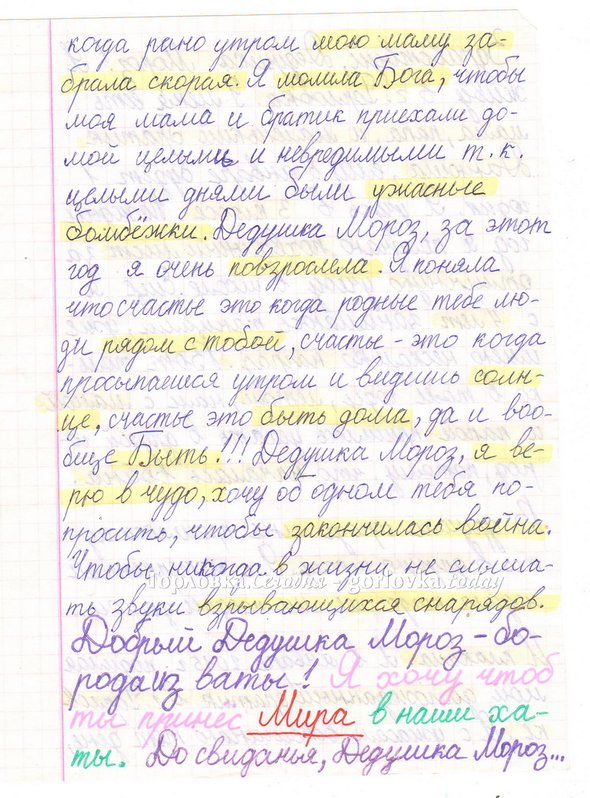 когда рано утром мою маму за-
брала скорая. Я молила Бога, чтобы
моя мама и братик приехали до-
мой целыми и невредимыми т.к.
целыми днями были ужасные
бомбёжки. Дедушка Мороз, за этот
год я очень повзрослела. Я поняла
что счастье это когда родные тебе лю-
ди рядом с тобой, счастье - это когда
просыпаешся утром и видишь солн-
це, счастье это быть дома, да и воо-
бще Быть!!! Дедушка Мороз, я ве-
рю в чудо, хочу об одном тебя по-
просить, чтобы закончилась война.
Чтобы никогда в жизни не слыша-
Горловка.Сегодня - gorlovka.today
ть звуки взрывающихся снарядов.
Добрый Дедушка Мороз - бо-
рода из ваты! Я хочу чтоб
ты принёс Мира в наши ха-
ты. До свиданья, Дедушка Мороз...